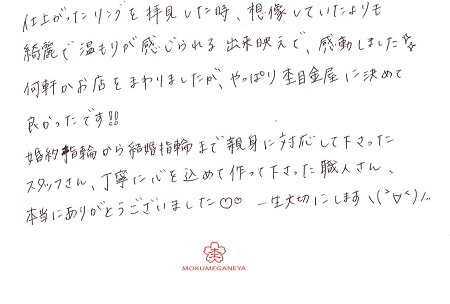 仕上がったリングを拝見した時、想像していたよりも
綺麗で温もりが感じられる出来映えで、感動しました☆
何軒かお店をまわりましたが、やっぱり杢目金屋に決めて
良かったです!!
婚約指輪から結婚指輪まで親身に対応して下さった
スタッフさん、丁寧に心を込めて作って下さった職人さん、
本当にありがとうございました♡♡ 一生大切にします＼(^∀^)//
杢
MOKUMEGANEYA